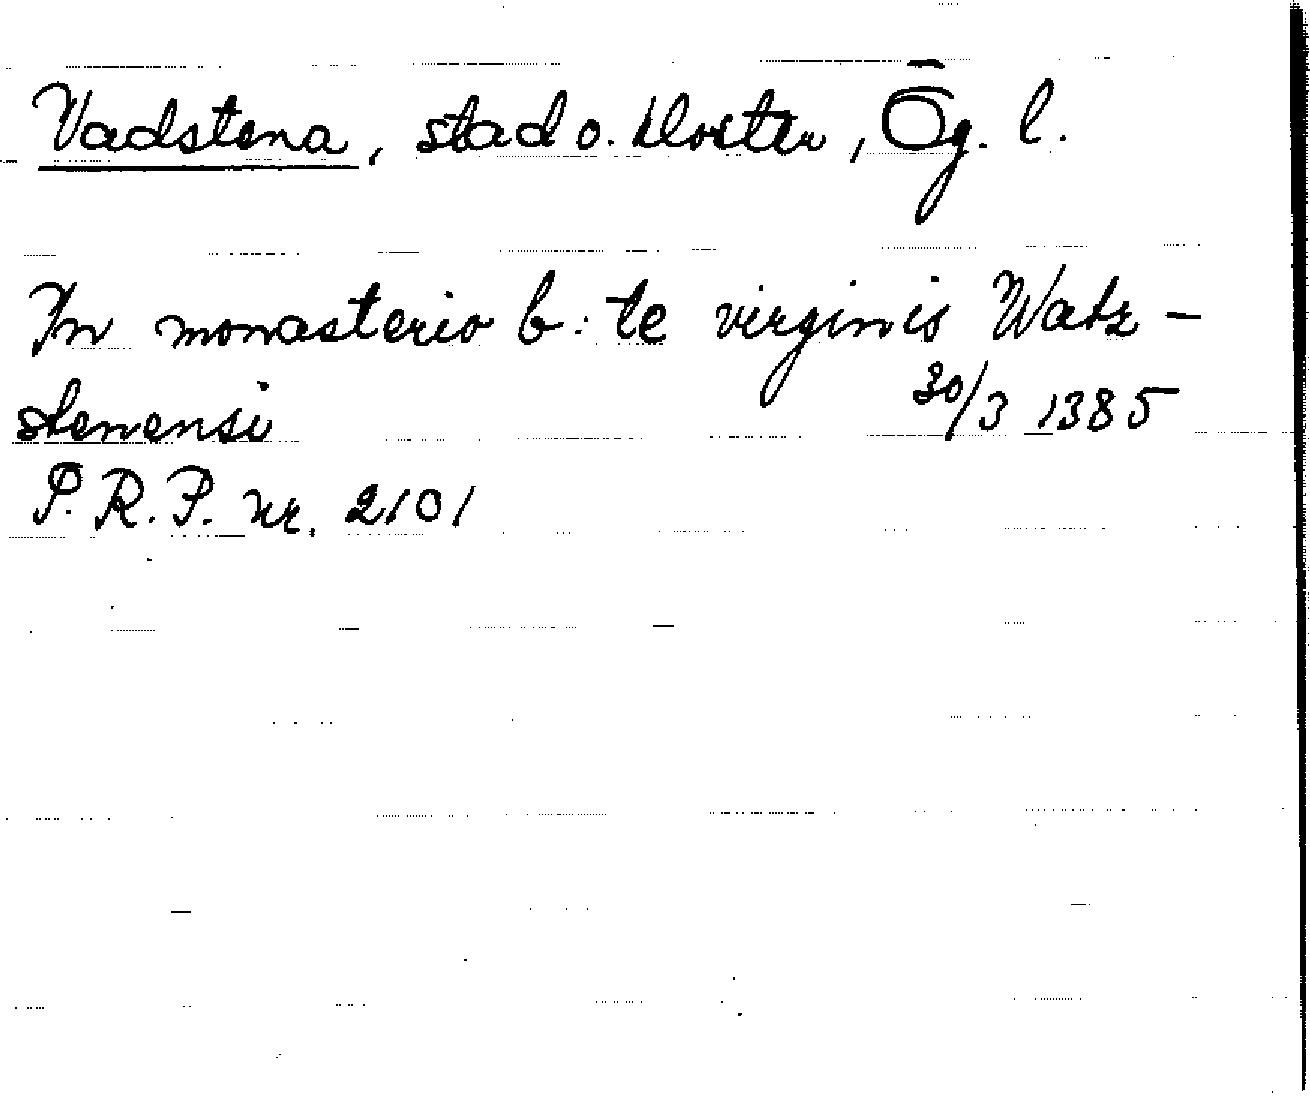 Vadstena, stad o. kloster, Ög. l.
In monasterio b:te virginis Watz-
stenensi 30/3 1385
S.R.P. nr. 2101